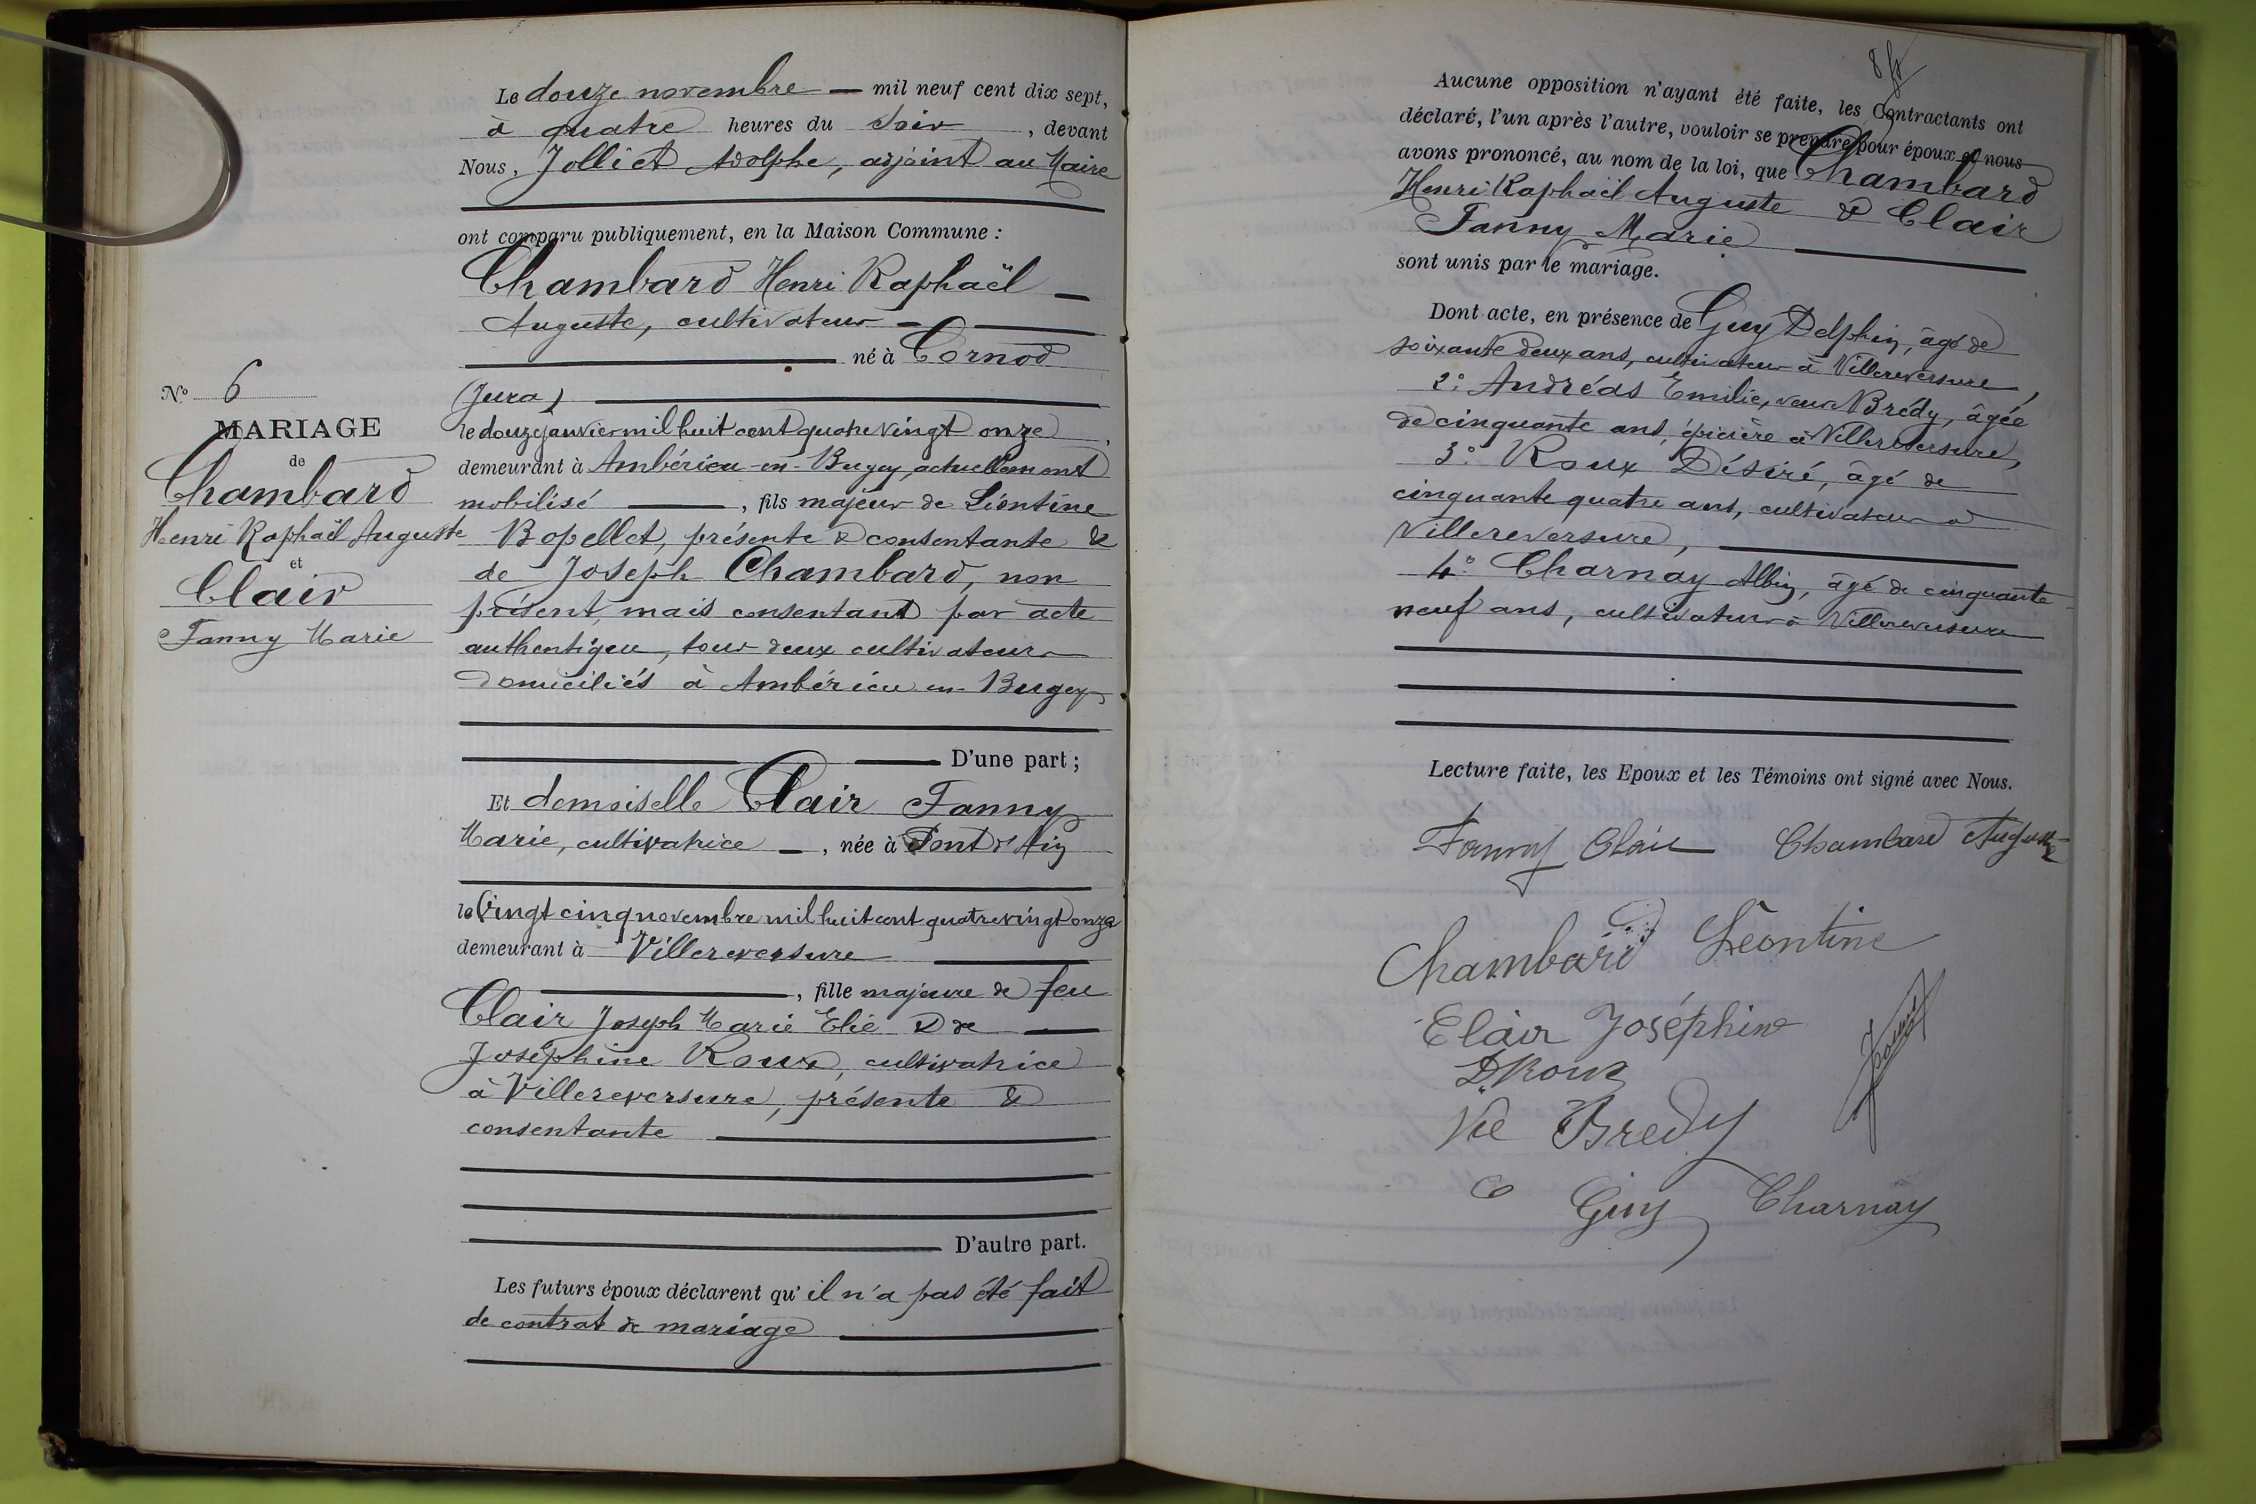 Le douze novembre — mil neuf cent dix sept,
à quatre heures du soir, devant
Nous, Jolliet Adolphe, adjoint au Maire
ont comparu publiquement, en la Maison Commune :
Chambard Henri Raphaël —
Auguste, cultivateur —
né à Cornod
(Jura)
le douze janvier mil huit cent quatre vingt onze,
demeurant à Ambérieu-en-Bugey, actuellement
mobilisé, fils majeur de Léontine
Bopellet, présente & consentante &
de Joseph Chambard, non
présent, mais consentant par acte
authentique, tous deux cultivateurs
domiciliés à Ambérieu en-Bugey
D'une part ;
Et demoiselle Clair Fanny
Marie, cultivatrice —, née à Pont d'Ain
le vingt cinq novembre mil huit cent quatre vingt onze
demeurant à Villereversure
, fille majeure de feu
Clair Joseph Marie Elie & de
Joséphine Roux, cultivatrice
à Villereversure, présente &
consentante
D'autre part.
Les futurs époux déclarent qu'il n'a pas été fait
de contrat de mariage
N° 6
MARIAGE
de
Chambard
Henri Raphaël Auguste
et
Clair
Fanny Marie
Aucune opposition n'ayant été faite, les Contractants ont
déclaré, l'un après l'autre, vouloir se prendre pour époux et nous
avons prononcé, au nom de la loi, que Chambard
Henri Raphaël Auguste & Clair
Fanny Marie
sont unis par le mariage.
Dont acte, en présence de Guy Delphin, âgé de
soixante deux ans, cultivateur à Villereversure,
2° Andréas Emilie, veuve Brédy, âgée
de cinquante ans, épicière à Villereversure,
3° Roux Désiré, âgé de
cinquante quatre ans, cultivateur à
Villereversure,
4° Charnay Albin, âgé de cinquante
neuf ans, cultivateur à Villereversure
Lecture faite, les Epoux et les Témoins ont signé avec Nous.
Fanny Clair Chambard Auguste
Chambard Léontine
Clair Joséphine
D. Roux
Vve Bredy
Guy Charnay